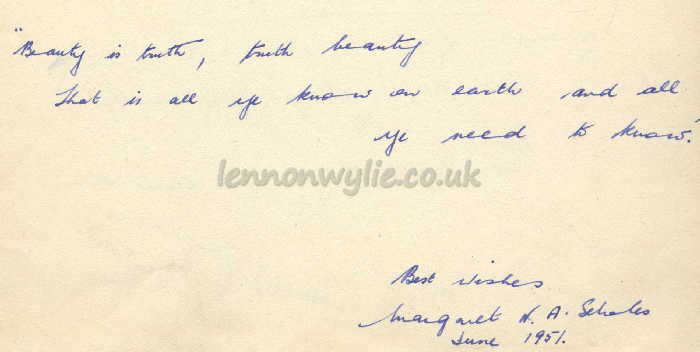 "Beauty is truth, truth beauty
That is all ye know on earth and all
ye need to know."
lennonwylie.co.uk
Best Wishes
Margaret N. A. Scholes
June 1951.